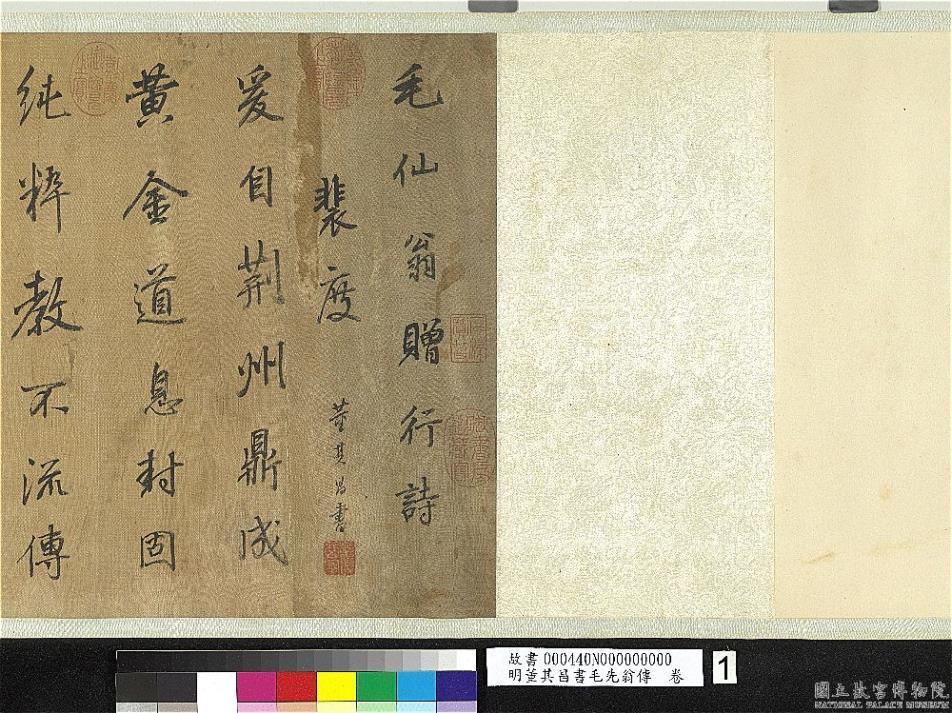 毛仙翁贈行詩
裴度
董其昌書
爰自荆州鼎成
黄金道息封固
純粹教不流傳
故書 000440N000000000
明董其昌書毛先翁傳 卷
1
國立故宮博物院
NATIONAL PALACE MUSEUM